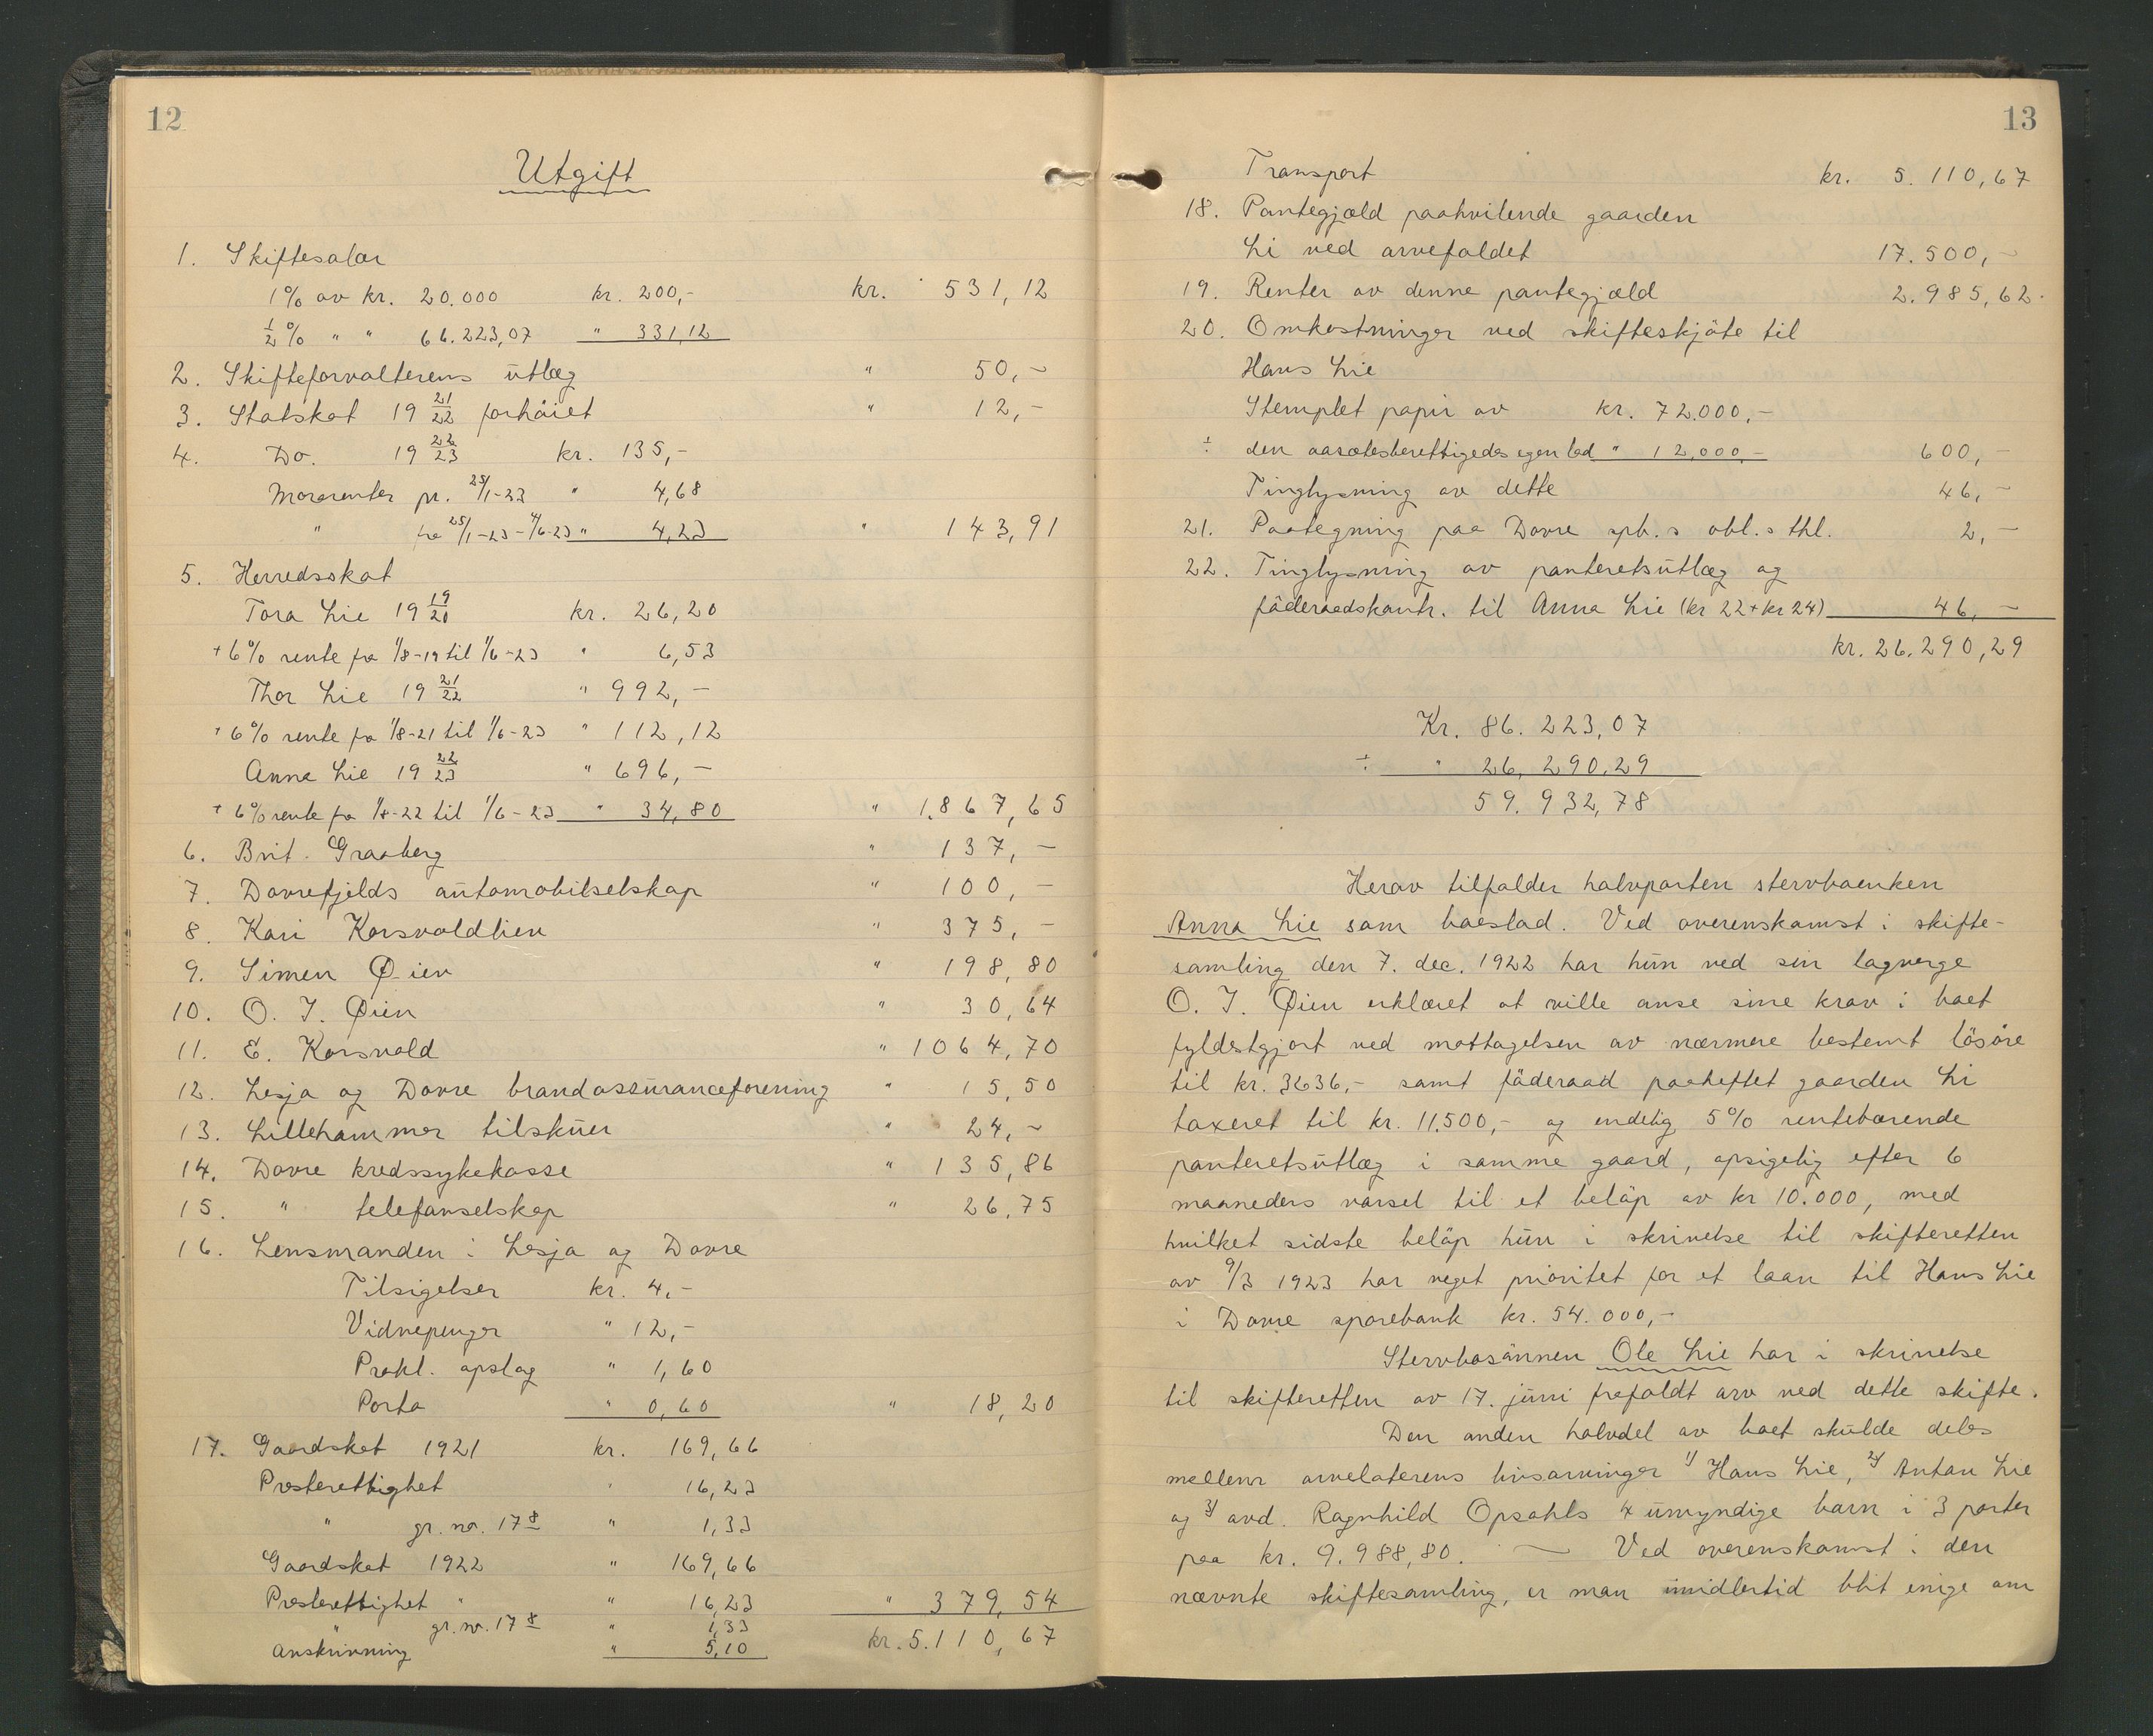 12
Utgift
1. Skiftesalær
1% av kr. 20.000 kr. 200,- kr. 531,12
½% " " 66.223,07 " 331,12
2. Skifteforvalterens utlæg " 50,-
3. Statskat 19 21/22 forhöiet " 12,-
4. Do. 19 22/23 kr. 135,-
Morarenter pr. 25/1-23 " 4,68
" fra 25/1-23 - 4/6-23 " 4,23 " 143,91
5. Herredsskat
Tora Lie 19 19/20 kr. 26,20
+ 6% rente fra 1/8-19 til 1/6-23 " 6,53
Thor Lie 19 21/22 " 992,-
+ 6% rente fra 1/8-21 til 1/6-23 " 112,12
Anna Lie 19 22/23 " 696,-
+ 6% rente fra 1/8-22 til 1/6-23 " 34,80 " 1.867,65
6. Brit. Graaberg " 137,-
7. Dovrefjelds automobilselskap " 100,-
8. Kari Korsvoldlien " 375,-
9. Simen Øien " 198,80
10. O. J. Øien " 30,64
11. E. Korsvold " 1064,70
12. Lesja og Dovre brandassuranceforening " 15,50
13. Lillehammer tilskuer " 24,-
14. Dovre kredssykekasse " 135,86
15. " telefonselskap " 26,75
16. Lensmanden i Lesja og Dovre
Tilsigelser kr. 4,-
Vidnepenger " 12,-
Prokl. opslag " 1,60
Porto " 0,60 " 18,20
17. Gaardskat 1921 kr. 169,66
Presterettighet " 16,23
" gr. nr. 17 8 " 1,33
Gaardskat 1922 " 169,66
Presterettighet " " 16,23 " 379,54
" gr. nr. 17 8 " 1,33
Anskrivning " 5,10 kr. 5.110,67
13
Transport kr. 5.110,67
18. Pantegjæld paahvilende gaarden
Li ved arvefaldet 17.500,-
19. Renter av denne pantegjæld 2.985,62.
20. Omkostninger ved skifteskjöte til
Hans Lie
Stemplet papir av kr. 72.000,-
÷ den aasætesberettigedes egen lod " 12,000,- 600,-
Tinglysning av dette 46,-
21. Paategning paa Dovre spb.s obl. s thl. 2,-
22. Tinglysning av panteretsutlæg og
föderaadskontr. til Anna Lie (kr 22 + kr 24) 46,-
kr. 26.290,29
Kr. 86.223,07
÷ " 26,290,29
59.932,78
Herav tilfalder halvparten stervboenken
Anna Lie som boeslod. Ved overenskomst i skifte-
samling den 7. dec. 1922 har hun ved sin lagverge
O. J. Øien erklæret at ville anse sine krav i boet
fyldestgjort ved mottagelsen av nærmere bestemt lösöre
til kr. 3636,- samt föderaad paaheftet gaarden Li
taxeret til kr. 11.500,- og endelig 5% rentebærende
panteretsutlæg i samme gaard, opsigelig efter 6
maaneders varsel til et belöp av kr 10.000, med
hvilket sidste belöp hun i skrivelse til skifteretten
av 9/3 1923 har veget prioritet for et laan til Hans Lie
i Dovre sparebank kr. 54.000,-
Stervbosönnen Ole Lie har i skrivelse
til skifteretten av 17. juni frafaldt arv ved dette skifte.
Den anden halvdel av boet skulde deles
mellem arvelaterens livsarvinger 1) Hans Lie, 2) Anton Lie
og 3) avd. Ragnhild Opsahls 4 umyndige barn i 3 parter
paa kr. 9.988,80. — Ved overenskomst i den
nævnte skiftesamling, er man imidlertid blit enige om